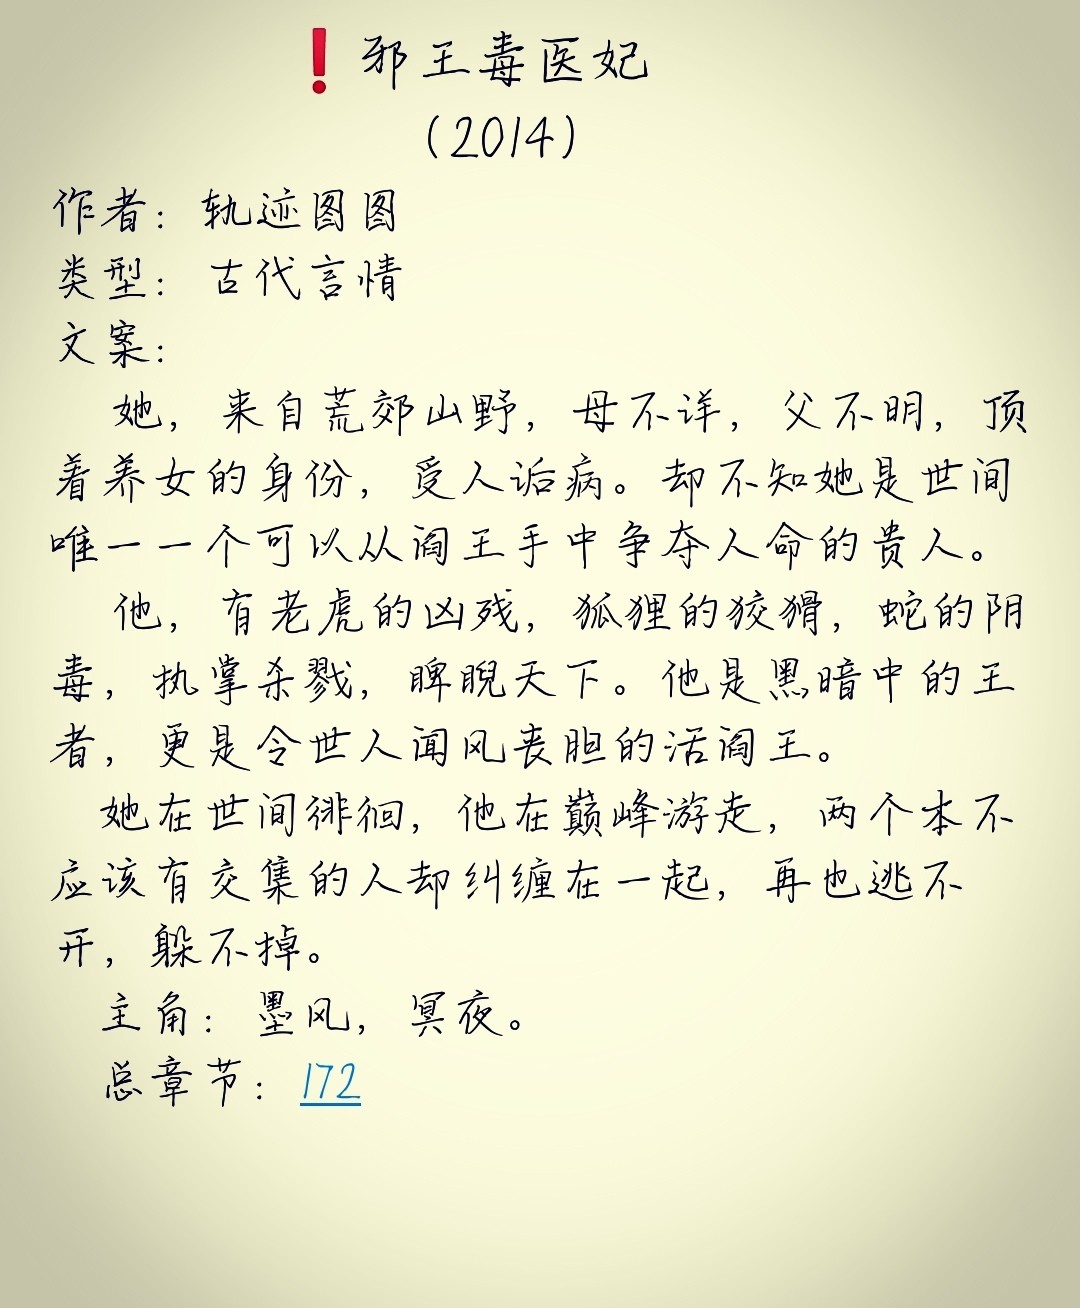 ❗邪王毒医妃
(2014)
作者：轨迹图图
类型：古代言情
文案：
她，来自荒郊山野，母不详，父不明，顶
着养女的身份，受人诟病。却不知她是世间
唯一一个可以从阎王手中争夺人命的贵人。
他，有老虎的凶残，狐狸的狡猾，蛇的阴
毒，执掌杀戮，睥睨天下。他是黑暗中的王
者，更是令世人闻风丧胆的活阎王。
她在世间徘徊，他在巅峰游走，两个本不
应该有交集的人却纠缠在一起，再也逃不
开，躲不掉。
主角：墨风，冥夜。
总章节：172